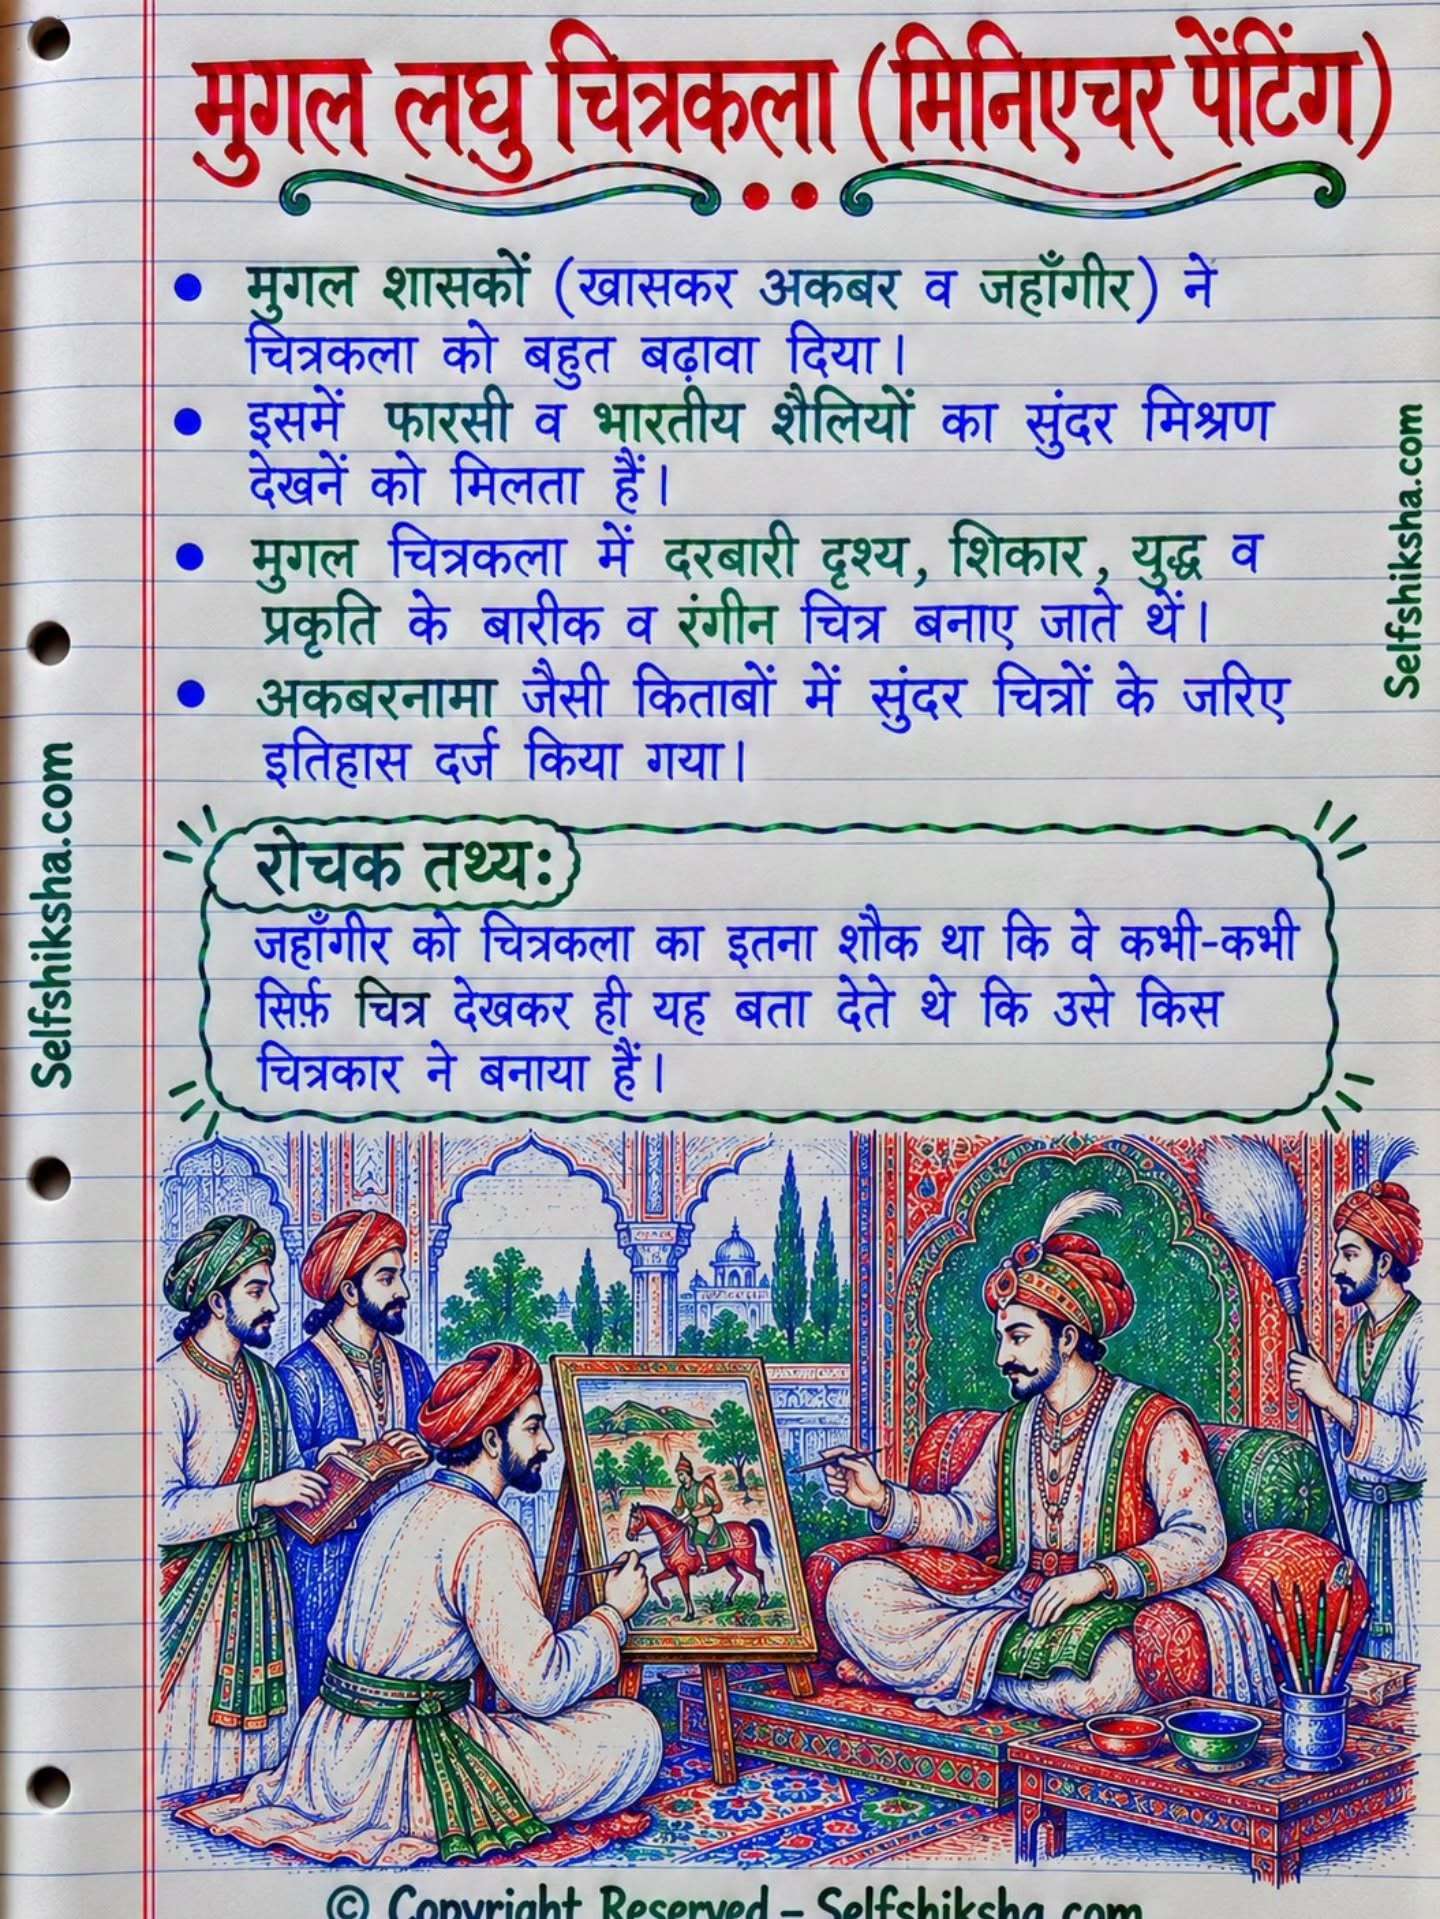 मुगल लघु चित्रकला (मिनिएचर पेंटिंग)
• मुगल शासकों (खासकर अकबर व जहाँगीर) ने
चित्रकला को बहुत बढ़ावा दिया।
• इसमें फारसी व भारतीय शैलियों का सुंदर मिश्रण
देखनें को मिलता हैं।
• मुगल चित्रकला में दरबारी दृश्य, शिकार, युद्ध व
प्रकृति के बारीक व रंगीन चित्र बनाए जाते थें।
• अकबरनामा जैसी किताबों में सुंदर चित्रों के जरिए
इतिहास दर्ज किया गया।
रोचक तथ्य:
जहाँगीर को चित्रकला का इतना शौक था कि वे कभी-कभी
सिर्फ़ चित्र देखकर ही यह बता देते थे कि उसे किस
चित्रकार ने बनाया हैं।
Selfshiksha.com
Selfshiksha.com
© Copyright Reserved – Selfshiksha.com